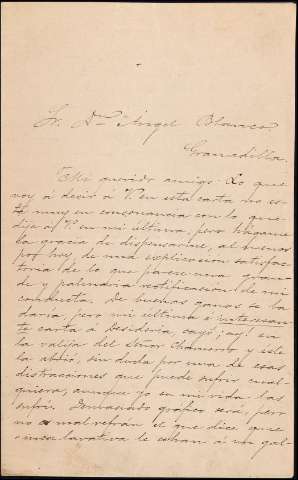 Sr. Dn. Ángel Blanco.
Granadilla.
Mi querido amigo: Lo que
voy á decir á V. en esta carta no es-
tá muy en consonancia con lo que
dije á V. en mi última, pero hágame
la gracia de dispensarme, al menos
por hoy, de una explicación satisfac-
toria de lo que parece una grande
y palmaria rectificación de mi
conducta. De buenas ganas se la
daría, pero mi última é interesan-
te carta á Desideria, cayó ¡ay! en
la valija del Señor Chamorro y este
la abrió, sin duda por una de esas
distracciones que puede sufrir cual-
quiera, aunque yo en mi vida las
sufrí. Demasiado gráfico será, pero
no es mal refran el que dice que
lavativa le echan á un gal-